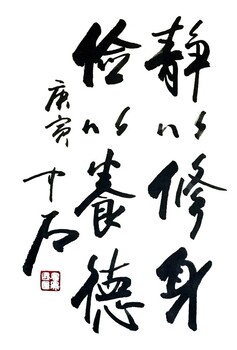 静以修身
俭以養德
庚寅
中石